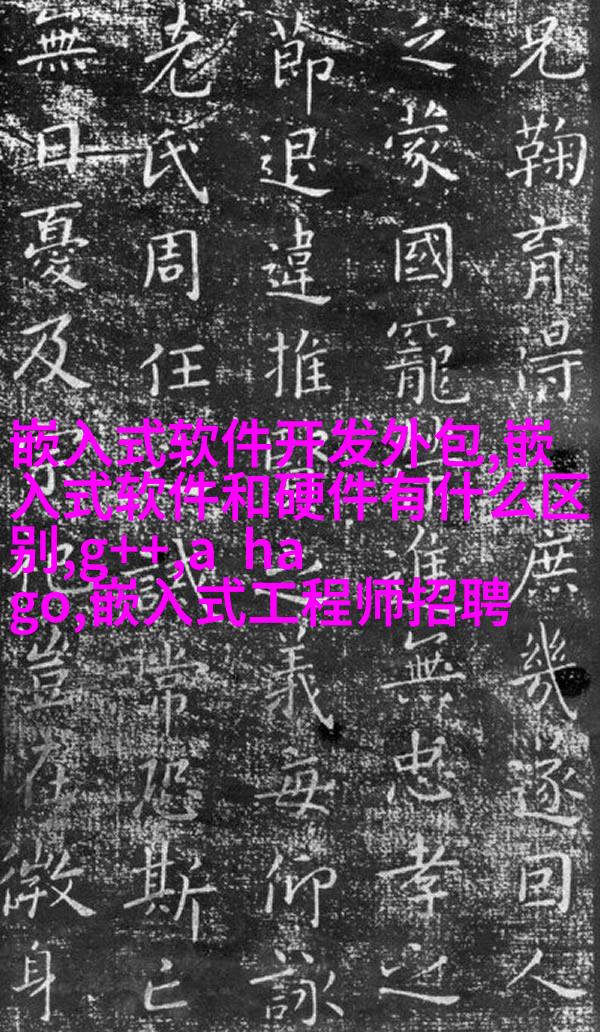 兄鞠育得庶幾遂回人
之蒙國寵進無忠孝之
節退違推之義每仰詠
老氏周任誡常恐斯亡
無日憂及豈在微身
嵌入式软件开发外包,嵌
入式软件和硬件有什么区
别,g++,a ha
go,嵌入式工程师招聘